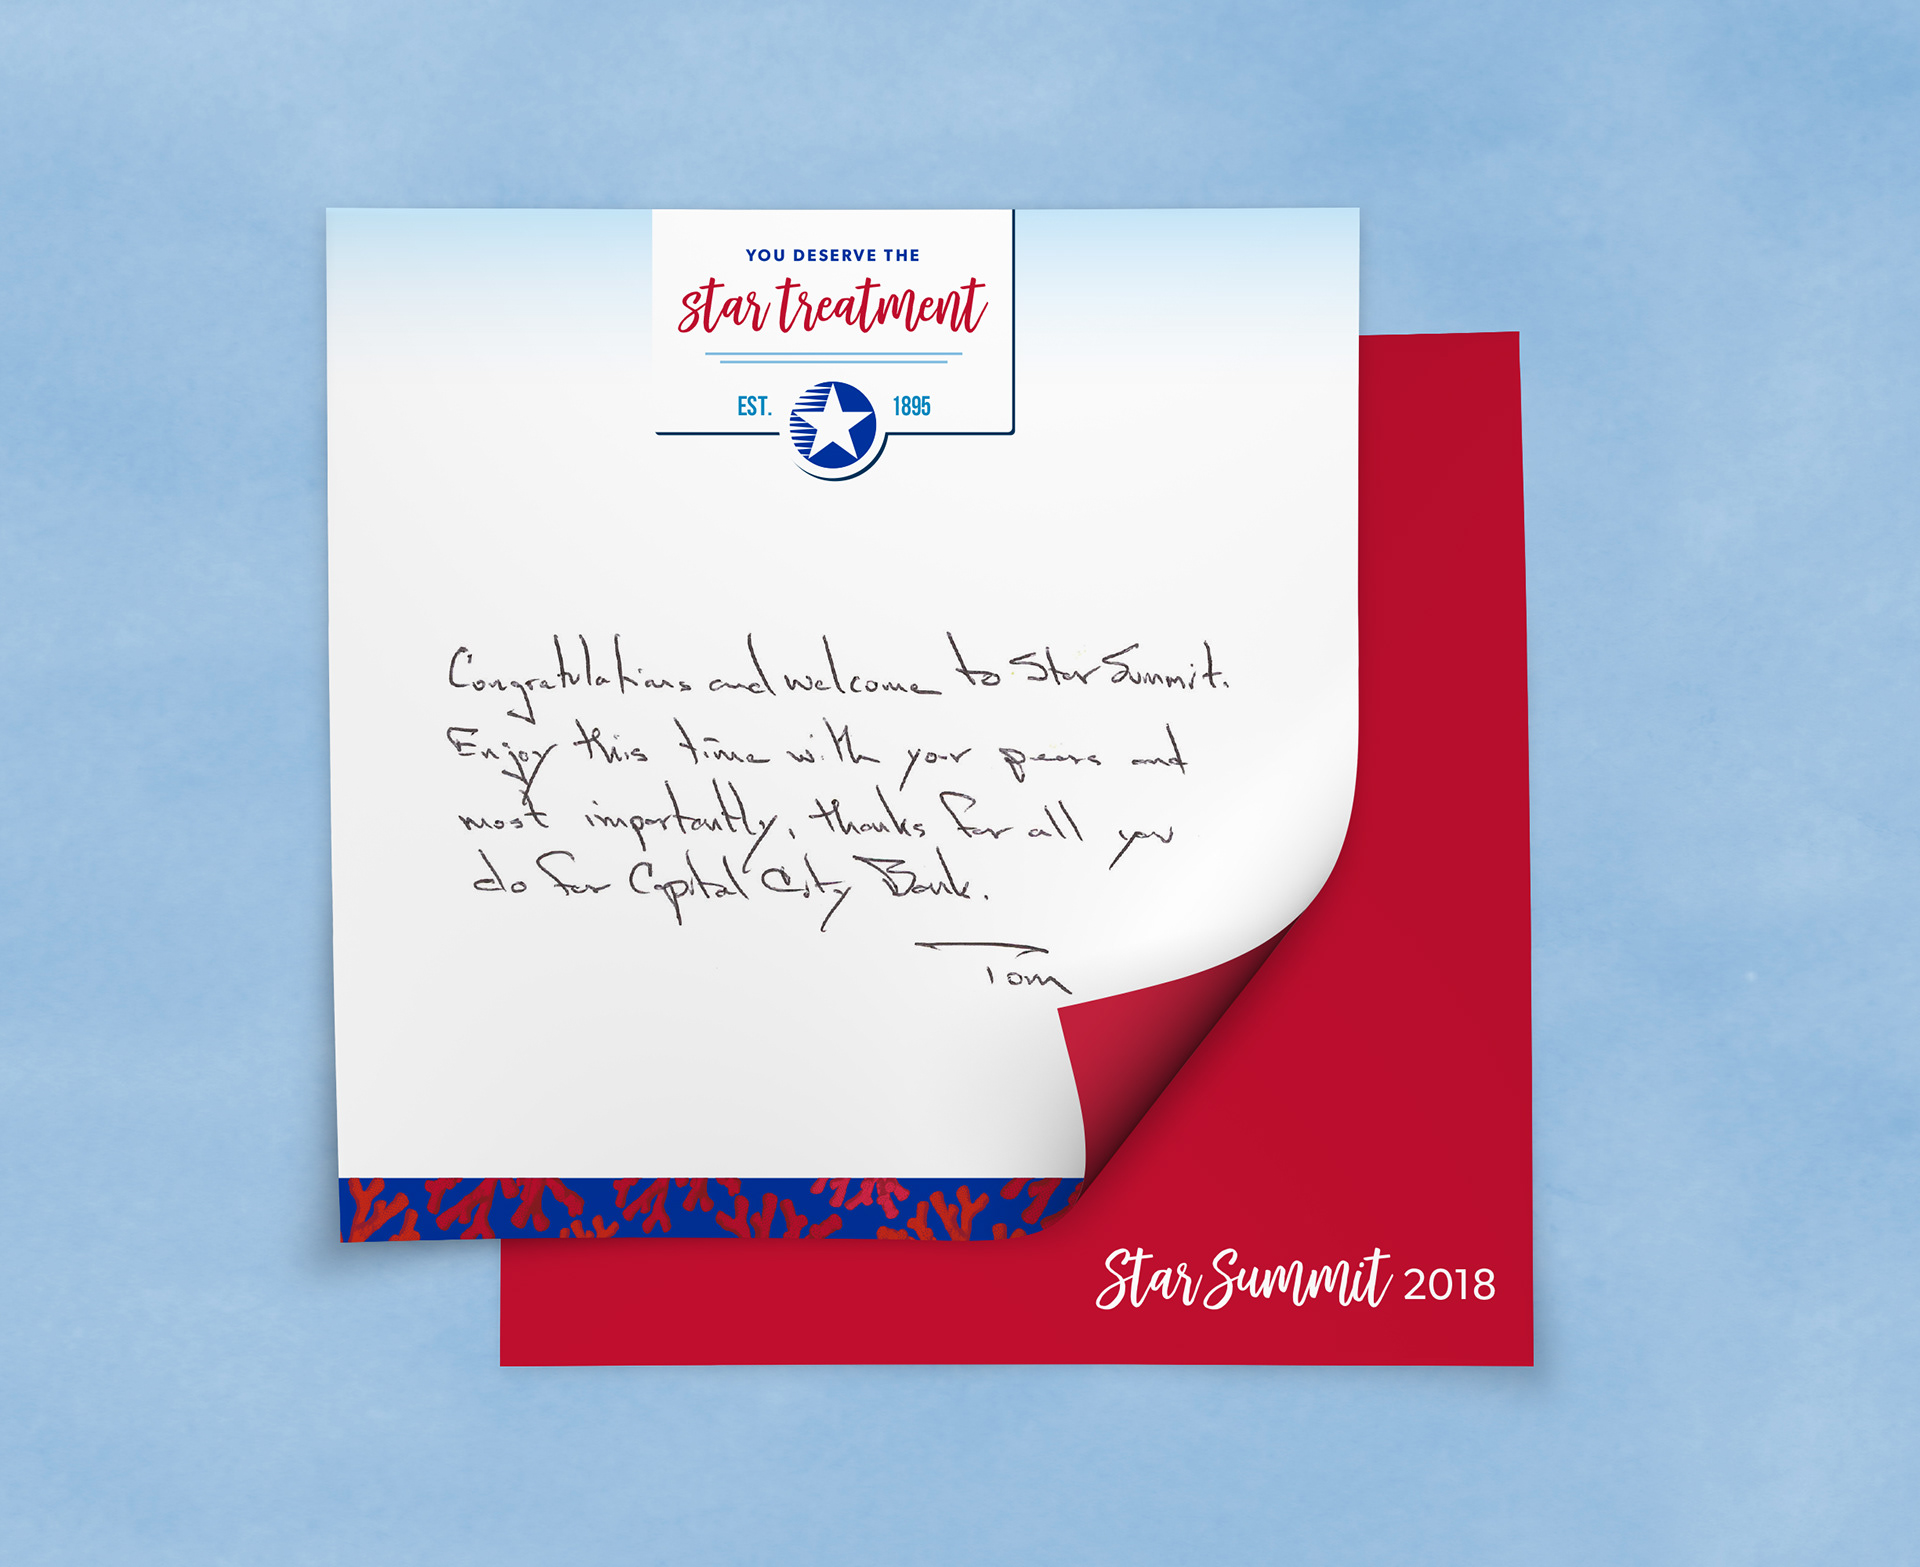 YOU DESERVE THE
star treatment
EST. 1895
Congratulations and welcome to Star Summit.
Enjoy this time with your peers and
most importantly, thanks for all you
do for Capital City Bank.
Tom
Star Summit 2018